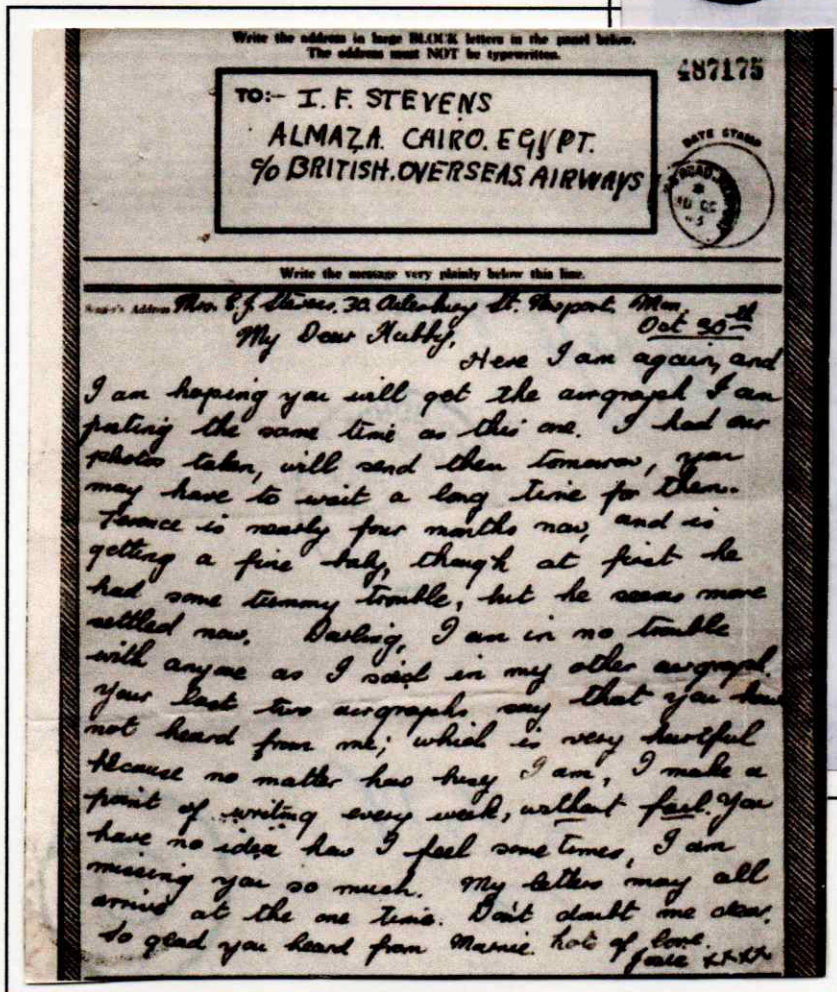 Write the address in large BLOCK letters in the panel below.
The address must NOT be typewritten.
487175
TO:- I. F. STEVENS
ALMAZA. CAIRO. EGYPT.
c/o BRITISH. OVERSEAS AIRWAYS
DATE STAMP
Write the message very plainly below this line.
Sender's Address Mrs. Stevens. 30. St. Newport. Mon.
Oct 30th
My Dear Hubby,
Here I am again, and
I am hoping you will get the airgraph I am
posting the same time as this one. I had our
photos taken, will send them tomorrow, you
may have to wait a long time for them.
Terence is nearly four months now, and is
getting a fine baby, though at first he
had some tummy trouble, but he seems more
settled now. Darling, I am in no trouble
with anyone as I said in my other airgraph.
Your last two airgraphs say that you have
not heard from me; which is very hurtful
because no matter how busy I am, I make a
point of writing every week, without fail. You
have no idea how I feel some times, I am
missing you so much. My letters may all
arrive at the one time. Don't doubt me dear.
So glad you heard from Marnie. Lots of love.
Josie xxxx